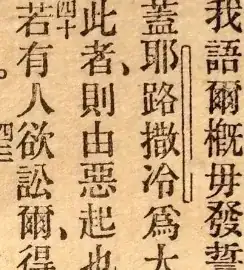 我語爾概毋發誓
蓋耶路撒冷為大
此者、則由惡起也
四十
若有人欲訟爾、得
。四三